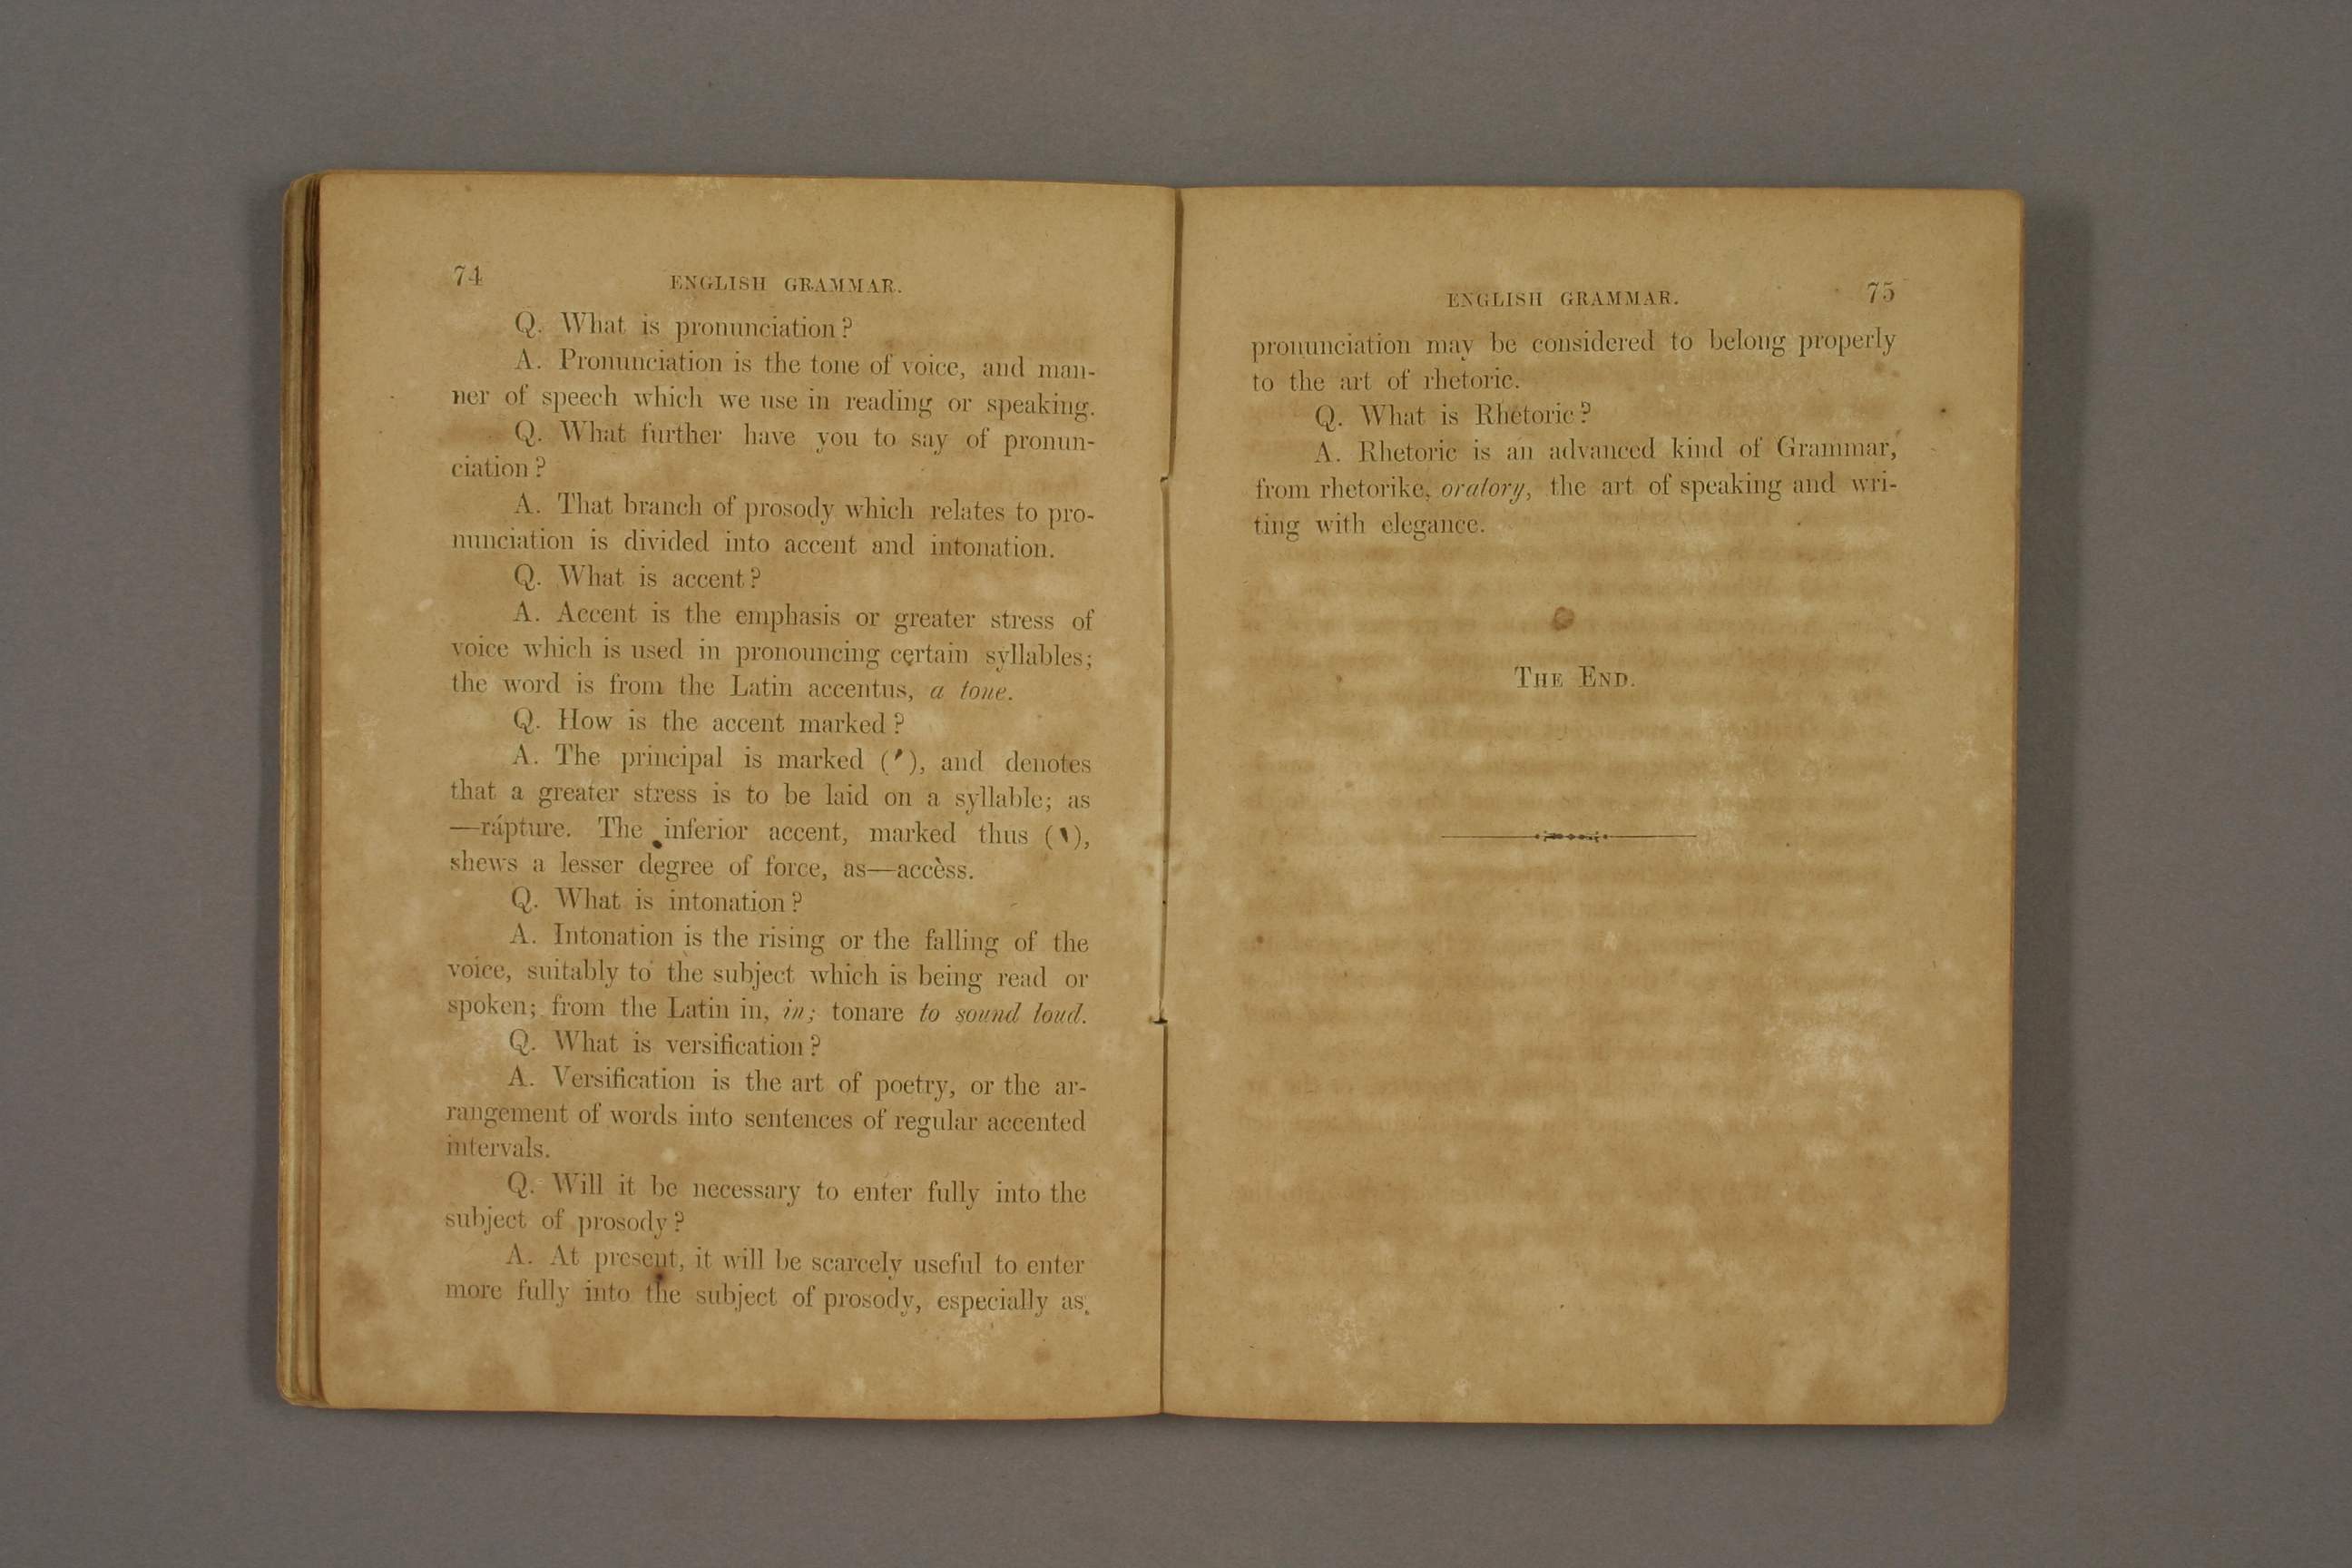 74
ENGLISH GRAMMAR.
Q. What is pronunciation?
A. Pronunciation is the tone of voice, and man-
ner of speech which we use in reading or speaking.
Q. What further have you to say of pronun-
ciation?
A. That branch of prosody which relates to pro-
nunciation is divided into accent and intonation.
Q. What is accent?
A. Accent is the emphasis or greater stress of
voice which is used in pronouncing certain syllables;
the word is from the Latin accentus, a tone.
Q. How is the accent marked?
A. The principal is marked (ˊ), and denotes
that a greater stress is to be laid on a syllable; as
—rápture. The inferior accent, marked thus (ˋ),
shews a lesser degree of force, as—accèss.
Q. What is intonation?
A. Intonation is the rising or the falling of the
voice, suitably to the subject which is being read or
spoken; from the Latin in, in; tonare to sound loud.
Q. What is versification?
A. Versification is the art of poetry, or the ar-
rangement of words into sentences of regular accented
intervals.
Q. Will it be necessary to enter fully into the
subject of prosody?
A. At present, it will be scarcely useful to enter
more fully into the subject of prosody, especially as
ENGLISH GRAMMAR.
75
pronunciation may be considered to belong properly
to the art of rhetoric.
Q. What is Rhetoric?
A. Rhetoric is an advanced kind of Grammar,
from rhetorike, oratory, the art of speaking and wri-
ting with elegance.
THE END.